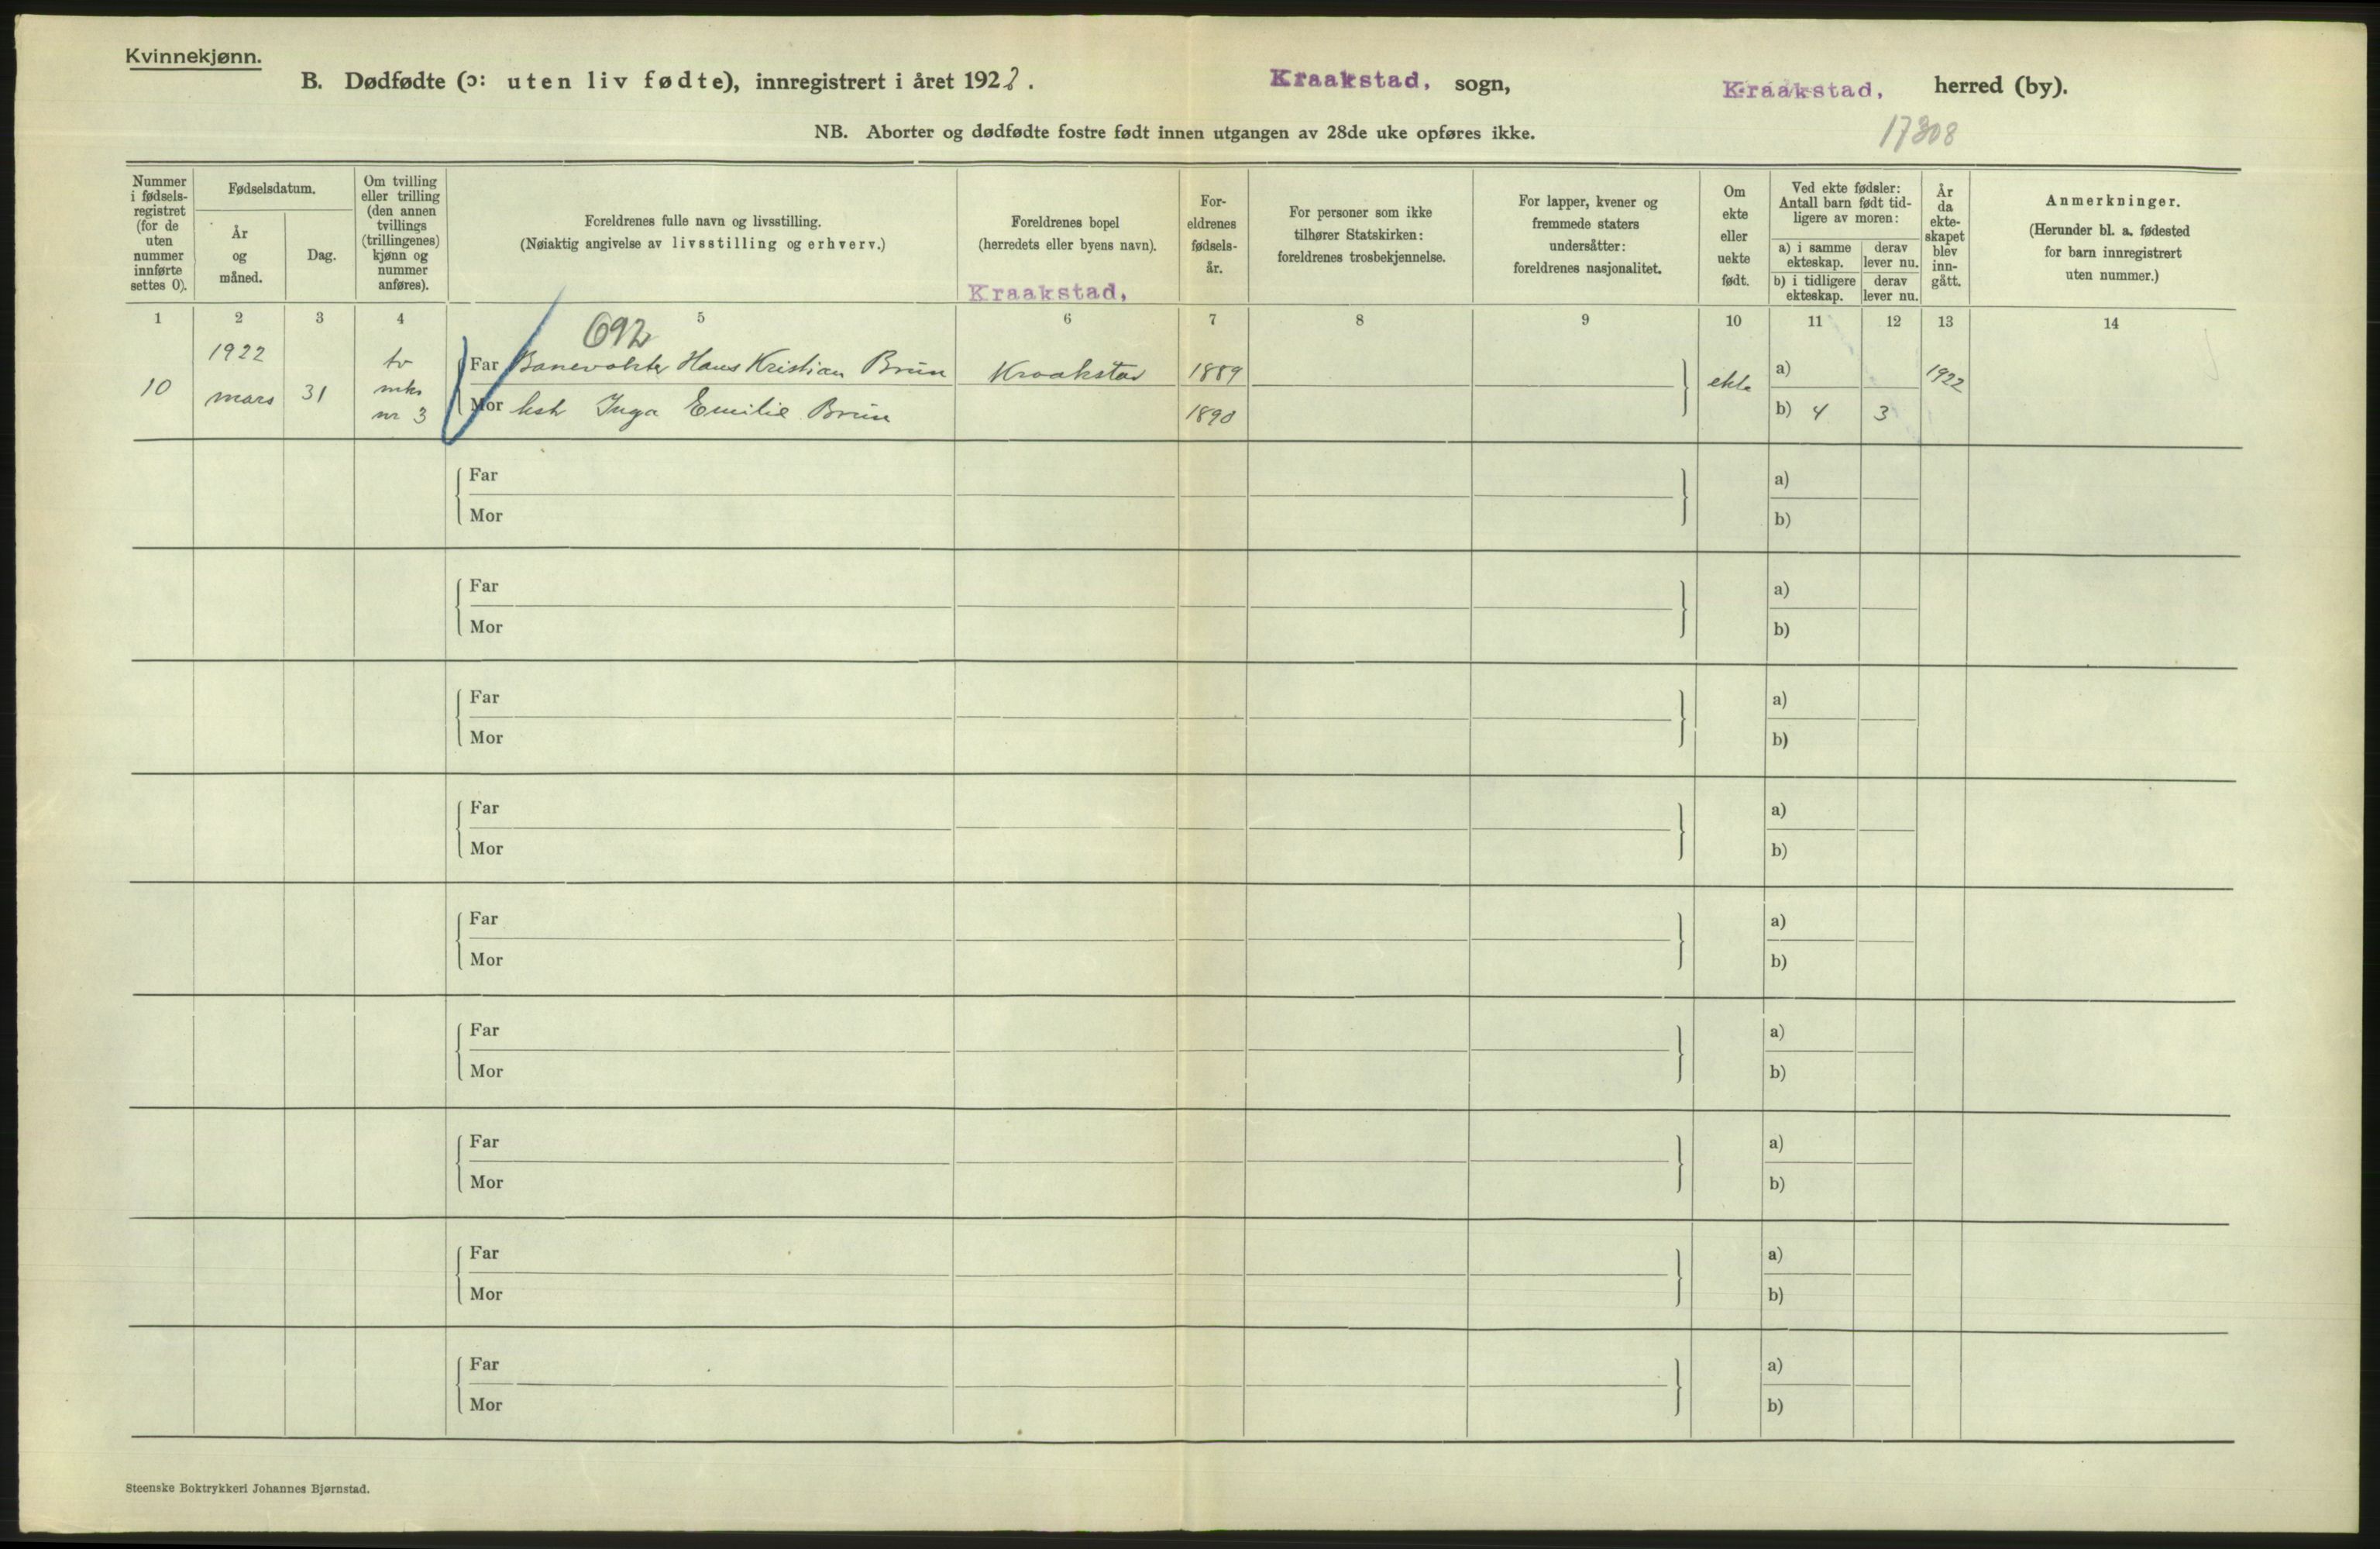 Kvinnekjønn.
B. Dødfødte (ɔ: uten liv fødte), innregistrert i året 1922. Kraakstad, sogn, Kraakstad, herred (by).
NB. Aborter og dødfødte fostre født innen utgangen av 28de uke opføres ikke.
17308
Nummer
i fødsels-
registret
(for de
uten
nummer
innførte
settes 0).
Fødselsdatum.
År
og
måned.
Dag.
Om tvilling
eller trilling
(den annen
tvillings
(trillingenes)
kjønn og
nummer
anføres).
Foreldrenes fulle navn og livsstilling.
(Nøiaktig angivelse av livsstilling og erhverv.)
Foreldrenes bopel
(herredets eller byens navn).
Kraakstad,
For-
eldrenes
fødsels-
år.
For personer som ikke
tilhører Statskirken:
foreldrenes trosbekjennelse.
For lapper, kvener og
fremmede staters
undersåtter:
foreldrenes nasjonalitet.
Om
ekte
eller
uekte
født.
Ved ekte fødsler:
Antall barn født tid-
ligere av moren:
a) i samme
ekteskap.
derav
lever nu.
b) i tidligere
ekteskap.
derav
lever nu.
År
da
ekte-
skapet
blev
inn-
gått.
Anmerkninger.
(Herunder bl. a. fødested
for barn innregistrert
uten nummer.)
1 2 3 4 5 6 7 8 9 10 11 12 13 14
692
10
1922
mars
31
tv
mks
nr 3
Far Banevokter Hans Kristian Brun Kraakstad 1889
Mor hsh Inga Emilie Brun 1890
ekte
a)
b) 4 3
1922
Far a)
Mor b)
Far a)
Mor b)
Far a)
Mor b)
Far a)
Mor b)
Far a)
Mor b)
Far a)
Mor b)
Far a)
Mor b)
Far a)
Mor b)
Far a)
Mor b)
Steenske Boktrykkeri Johannes Bjørnstad.